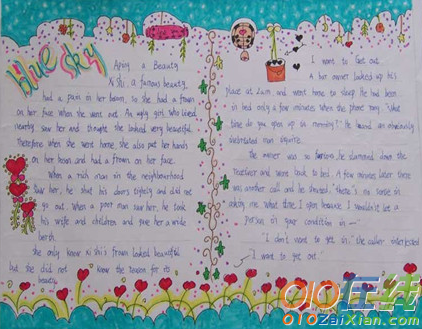 blue sky
Aping a Beauty
Xi Shi, a famous beauty,
had a pain in her bosom, so she had a frown
on her face when she went out. An ugly girl who lived
nearby saw her and thought she looked very beautiful.
Therefore when she went home, she also put her hands
on her bosom and had a frown on her face.
When a rich man in the neighbourhood
saw her, he shut his doors tightly and did not
go out. When a poor man saw her, he took
his wife and children and gave her a wide
berth.
She only knew Xi Shi's frown looked beautiful
but she did not know the reason for its
beauty.
I want to Get out
A bar owner locked up his
place at 2 a.m. and went home to sleep. He had been
in bed only a few minutes when the phone rang. "What
time do you open up in morning?" He heard an obviously
inebriated man inquire.
The owner was so furious, he slammed down the
and went back to bed. A few minutes later there
was another call and he
asking me what time I open because I wouldn't let a
person in your condition in —"
"I don't want to get in." the caller interjected
"I want to get out"
010在线
010ZaiXian.com